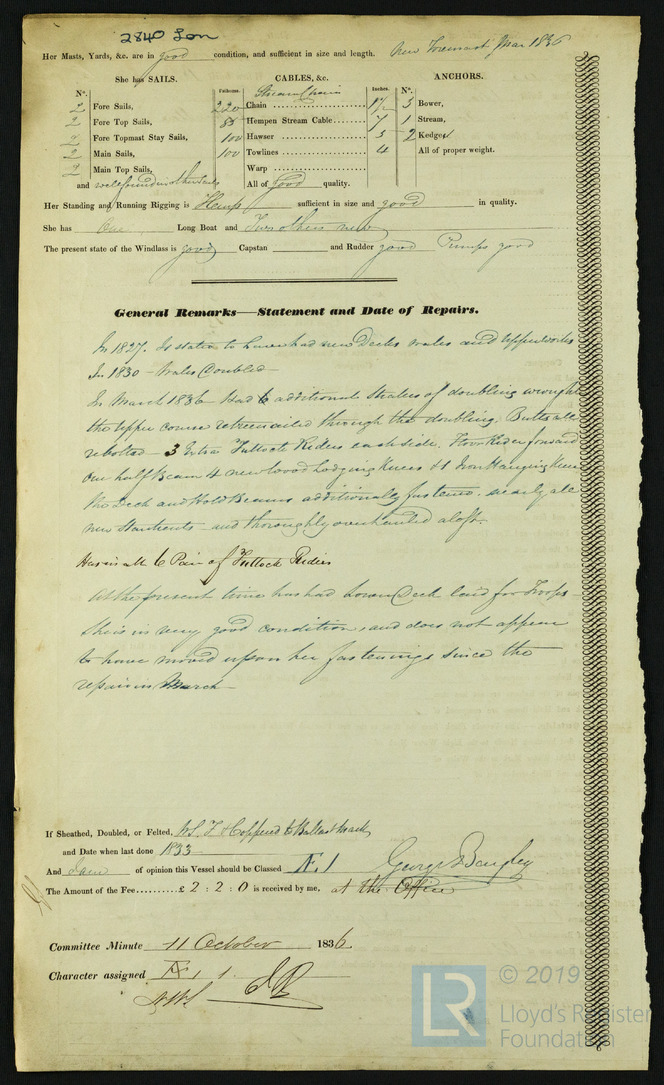 2840 Lon
Her Masts, Yards, &c. are in good condition, and sufficient in size and length. New Foremast Mar 1836
She has SAILS.
CABLES, &c.
ANCHORS.
Nº.
Fathoms.
Stream Chain
Inches.
Nº.
2 Fore Sails,
220
Chain
3 Bower,
2 Fore Top Sails,
85
Hempen Stream Cable
7
1 Stream,
2 Fore Topmast Stay Sails,
100
Hawser
5
2 Kedges
2 Main Sails,
100
Towlines
4
All of proper weight.
2 Main Top Sails,
Warp
and well found in other Sails
All of good quality.
Her Standing and Running Rigging is Hemp sufficient in size and good in quality.
She has One Long Boat and Two others new
The present state of the Windlass is good Capstan and Rudder good Pumps good
General Remarks—Statement and Date of Repairs.
In 1827. Is stated to have had new Decks wales and upperworks
In 1830 - Wales Doubled
In March 1836 - Had 6 additional strakes of doubling wrought
the upper course retreenailed through the doubling. Butts all
rebolted - 3 Extra Futtock Riders each side. Floor Rider forward
One half Beam 4 new wood Lodging Knees & 1 Iron Hanging Knee
the Deck and Hold Beams additionally fastened. nearly all
new Stanchents - and thoroughly overhauled aloft.
Has in all 6 Pair of Futtock Riders
At the present time has had Lower Deck laid for Troops -
She is in very good condition, and does not appear
to have moved upon her fastenings since the
repairs in March
If Sheathed, Doubled, or Felted, Wd. F & Coppered to Ballast Mark
and Date when last done 1833
And I am of opinion this Vessel should be Classed Æ. 1 George Bayley
The Amount of the Fee.........£ 2 : 2 : 0 is received by me, at the Office
Committee Minute 11 October 1836.
Character assigned Æ, 1
© 2019
LR
Lloyd's Register
Foundation